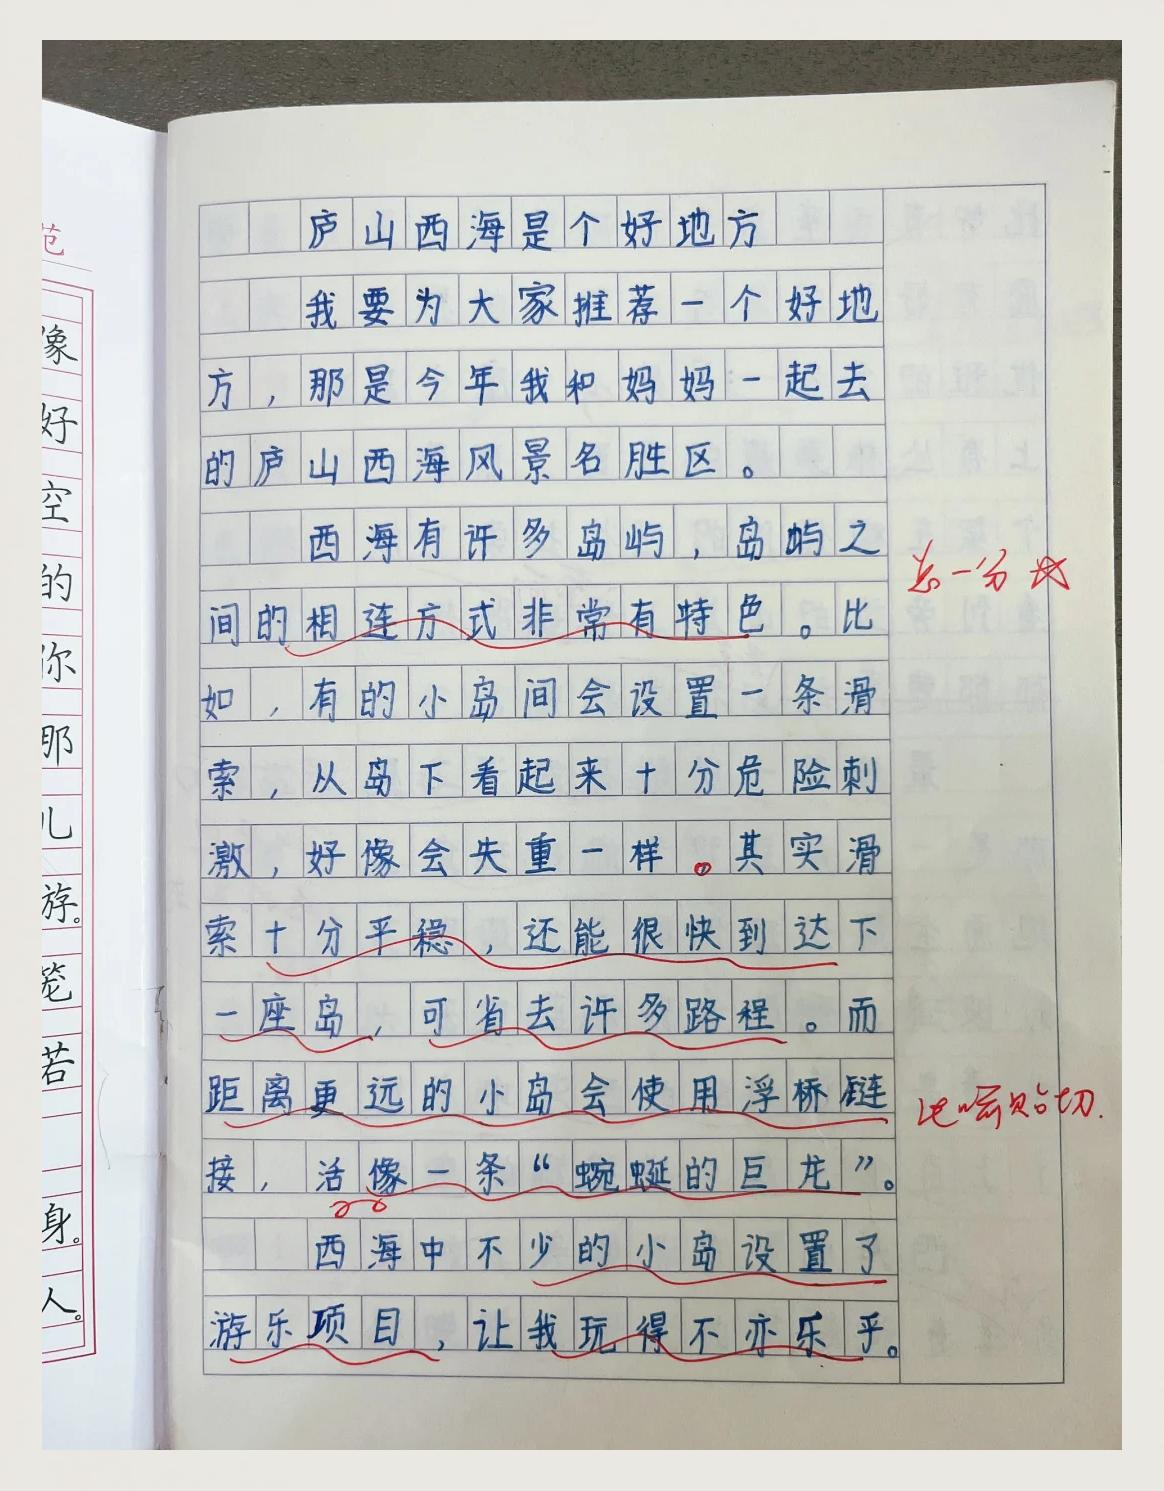 庐山西海是个好地方
我要为大家推荐一个好地
方，那是今年我和妈妈一起去
的庐山西海风景名胜区。
西海有许多岛屿，岛屿之
间的相连方式非常有特色。比
如，有的小岛间会设置一条滑
索，从岛下看起来十分危险刺
激，好像会失重一样。其实滑
索十分平稳，还能很快到达下
一座岛，可省去许多路程。而
距离更远的小岛会使用浮桥链
接，活像一条“蜿蜒的巨龙”。
西海中不少的小岛设置了
游乐项目，让我玩得不亦乐乎。
总一分
比喻贴切.
范
像
好
空
的
你
那
儿
游。
笼
若
身。
人。